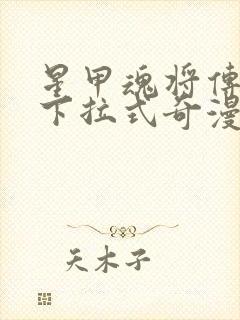 星甲魂将傳
下拉式奇漫
天木子